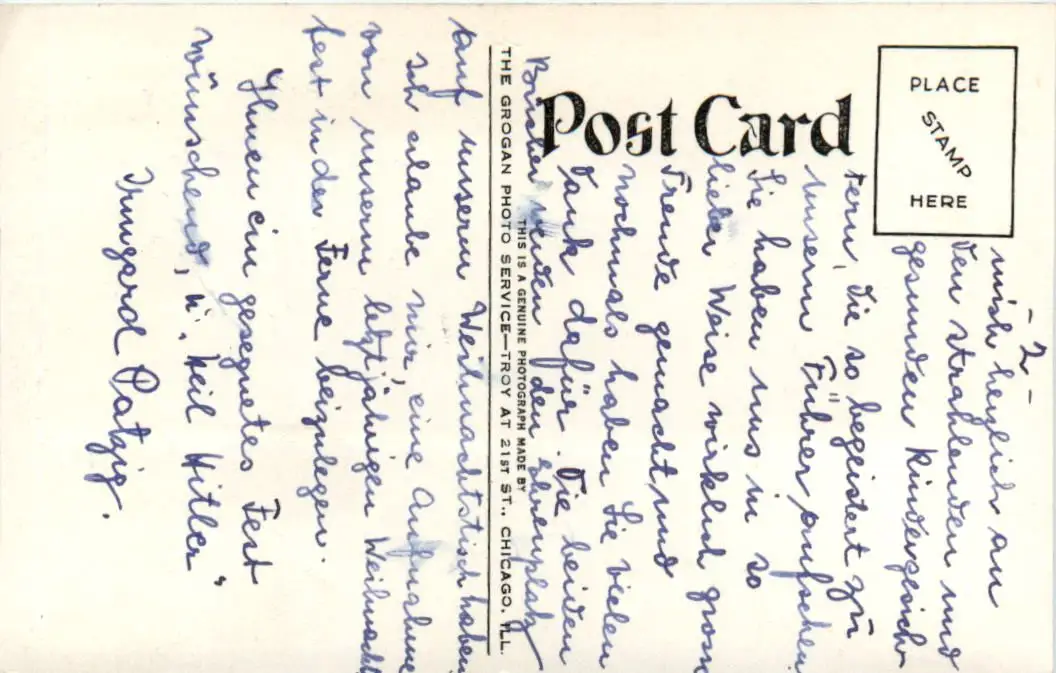 Post Card
PLACE
STAMP
HERE
THIS IS A GENUINE PHOTOGRAPH MADE BY
THE GROGAN PHOTO SERVICE—TROY AT 21ST ST., CHICAGO, ILL.
- 2 -
mich herzlich an
den strahlenden und
gesunden Kindergesich
tern, die so begeistert zu
unserm Führer aufsehen
Sie haben uns in so
lieber Weise wirklich gross
Freude gemacht, und
nochmals haben Sie vielen
Dank dafür. Die beiden
Bücher werden den Ehrenplatz
auf unserm Weihnachtstisch haben
Ich erlaube mir, eine Aufnahme
von unserm letztjährigen Weihnacht
fest in der Ferne beizulegen.
Ihnen ein gesegnetes Fest
wünschend, u. "Heil Hitler"
Irmgard Patzig.